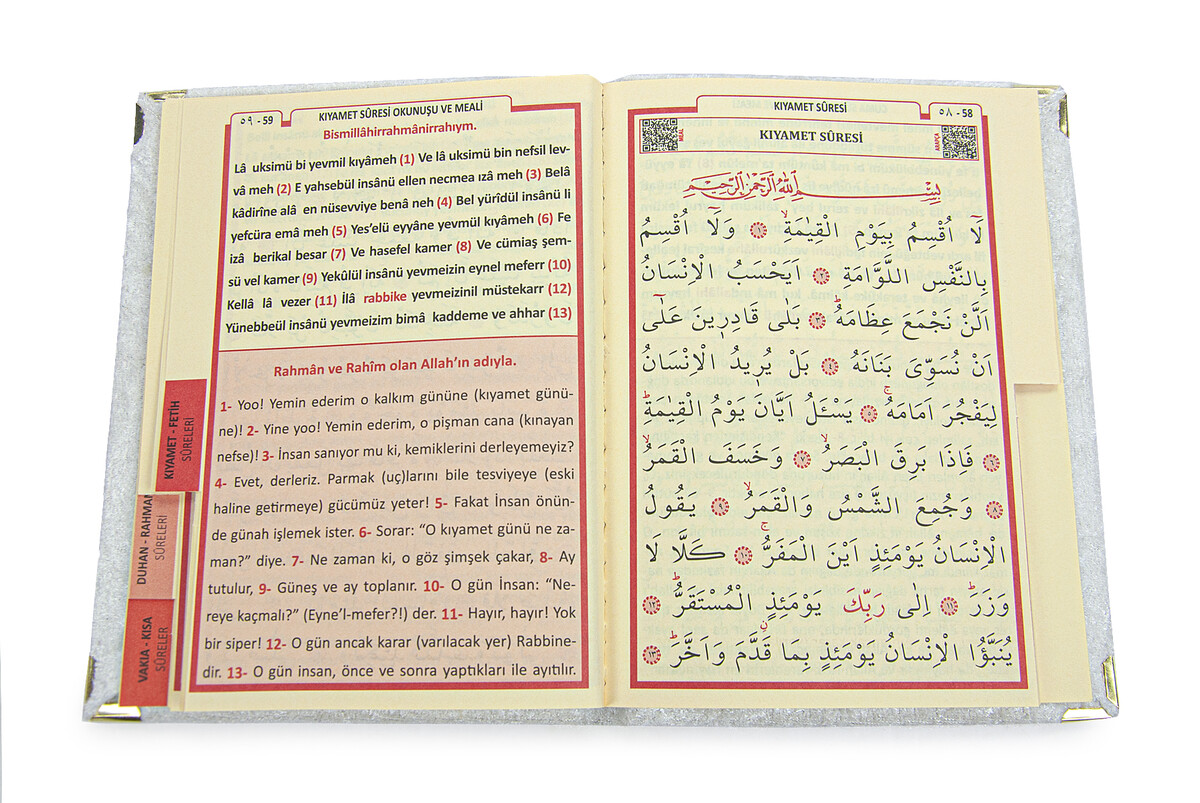 ٥٩ - 59
KIYAMET SÛRESİ OKUNUŞU VE MEALİ
Bismillâhirrahmânirrahıym.
Lâ uksimü bi yevmil kıyâmeh (1) Ve lâ uksimü bin nefsil lev-
vâ meh (2) E yahsebül insânü ellen necmea ızâ meh (3) Belâ
kâdirîne alâ en nüsevviye benâ neh (4) Bel yürîdül insânü li
yefcüra emâ meh (5) Yes'elü eyyâne yevmül kıyâmeh (6) Fe
izâ berikal besar (7) Ve hasefel kamer (8) Ve cümiaş şem-
sü vel kamer (9) Yekûlül insânü yevmeizin eynel meferr (10)
Kellâ lâ vezer (11) İlâ rabbike yevmeizinil müstekarr (12)
Yünebbeül insânü yevmeizim bimâ kaddeme ve ahhar (13)
Rahmân ve Rahîm olan Allah'ın adıyla.
1- Yoo! Yemin ederim o kalkım gününe (kıyamet günü-
ne)! 2- Yine yoo! Yemin ederim, o pişman cana (kınayan
nefse)! 3- İnsan sanıyor mu ki, kemiklerini derleyemeyiz?
4- Evet, derleriz. Parmak (uç)larını bile tesviyeye (eski
haline getirmeye) gücümüz yeter! 5- Fakat İnsan önün-
de günah işlemek ister. 6- Sorar: "O kıyamet günü ne za-
man?" diye. 7- Ne zaman ki, o göz şimşek çakar, 8- Ay
tutulur, 9- Güneş ve ay toplanır. 10- O gün İnsan: "Ne-
reye kaçmalı?" (Eyne'l-mefer?!) der. 11- Hayır, hayır! Yok
bir siper! 12- O gün ancak karar (varılacak yer) Rabbine-
dir. 13- O gün insan, önce ve sonra yaptıkları ile ayıtılır.
KIYAMET - FETİH
SÛRELERİ
DUHAN - RAHMAN
SÛRELERİ
VAKIA - KISA
SÛRELER
KIYAMET SÛRESİ
٥٨ - 58
MEAL
KIYAMET SÛRESİ
ARAPÇA
بِسْمِ اللّٰهِ الرَّحْمٰنِ الرَّحِيمِ
لَٓا اُقْسِمُ بِيَوْمِ الْقِيٰمَةِۙ ﴿١﴾ وَلَٓا اُقْسِمُ
بِالنَّفْسِ اللَّوَّامَةِ ﴿٢﴾ اَيَحْسَبُ الْاِنْسَانُ
اَلَّنْ نَجْمَعَ عِظَامَهُۜ ﴿٣﴾ بَلٰى قَادِر۪ينَ عَلٰٓى
اَنْ نُسَوِّىَ بَنَانَهُ ﴿٤﴾ بَلْ يُر۪يدُ الْاِنْسَانُ
لِيَفْجُرَ اَمَامَهُۚ ﴿٥﴾ يَسْـَٔلُ اَيَّانَ يَوْمُ الْقِيٰمَةِۜ
﴿٦﴾ فَاِذَا بَرِقَ الْبَصَرُۙ ﴿٧﴾ وَخَسَفَ الْقَمَرُۙ
﴿٨﴾ وَجُمِعَ الشَّمْسُ وَالْقَمَرُۙ ﴿٩﴾ يَقُولُ
الْاِنْسَانُ يَوْمَئِذٍ اَيْنَ الْمَفَرُّۚ ﴿١٠﴾ كَلَّا لَا
وَزَرَۜ ﴿١١﴾ اِلٰى رَبِّكَ يَوْمَئِذٍ الْمُسْتَقَرُّۜ ﴿١٢﴾
يُنَبَّؤُا الْاِنْسَانُ يَوْمَئِذٍ بِمَا قَدَّمَ وَاَخَّرَۜ ﴿١٣﴾